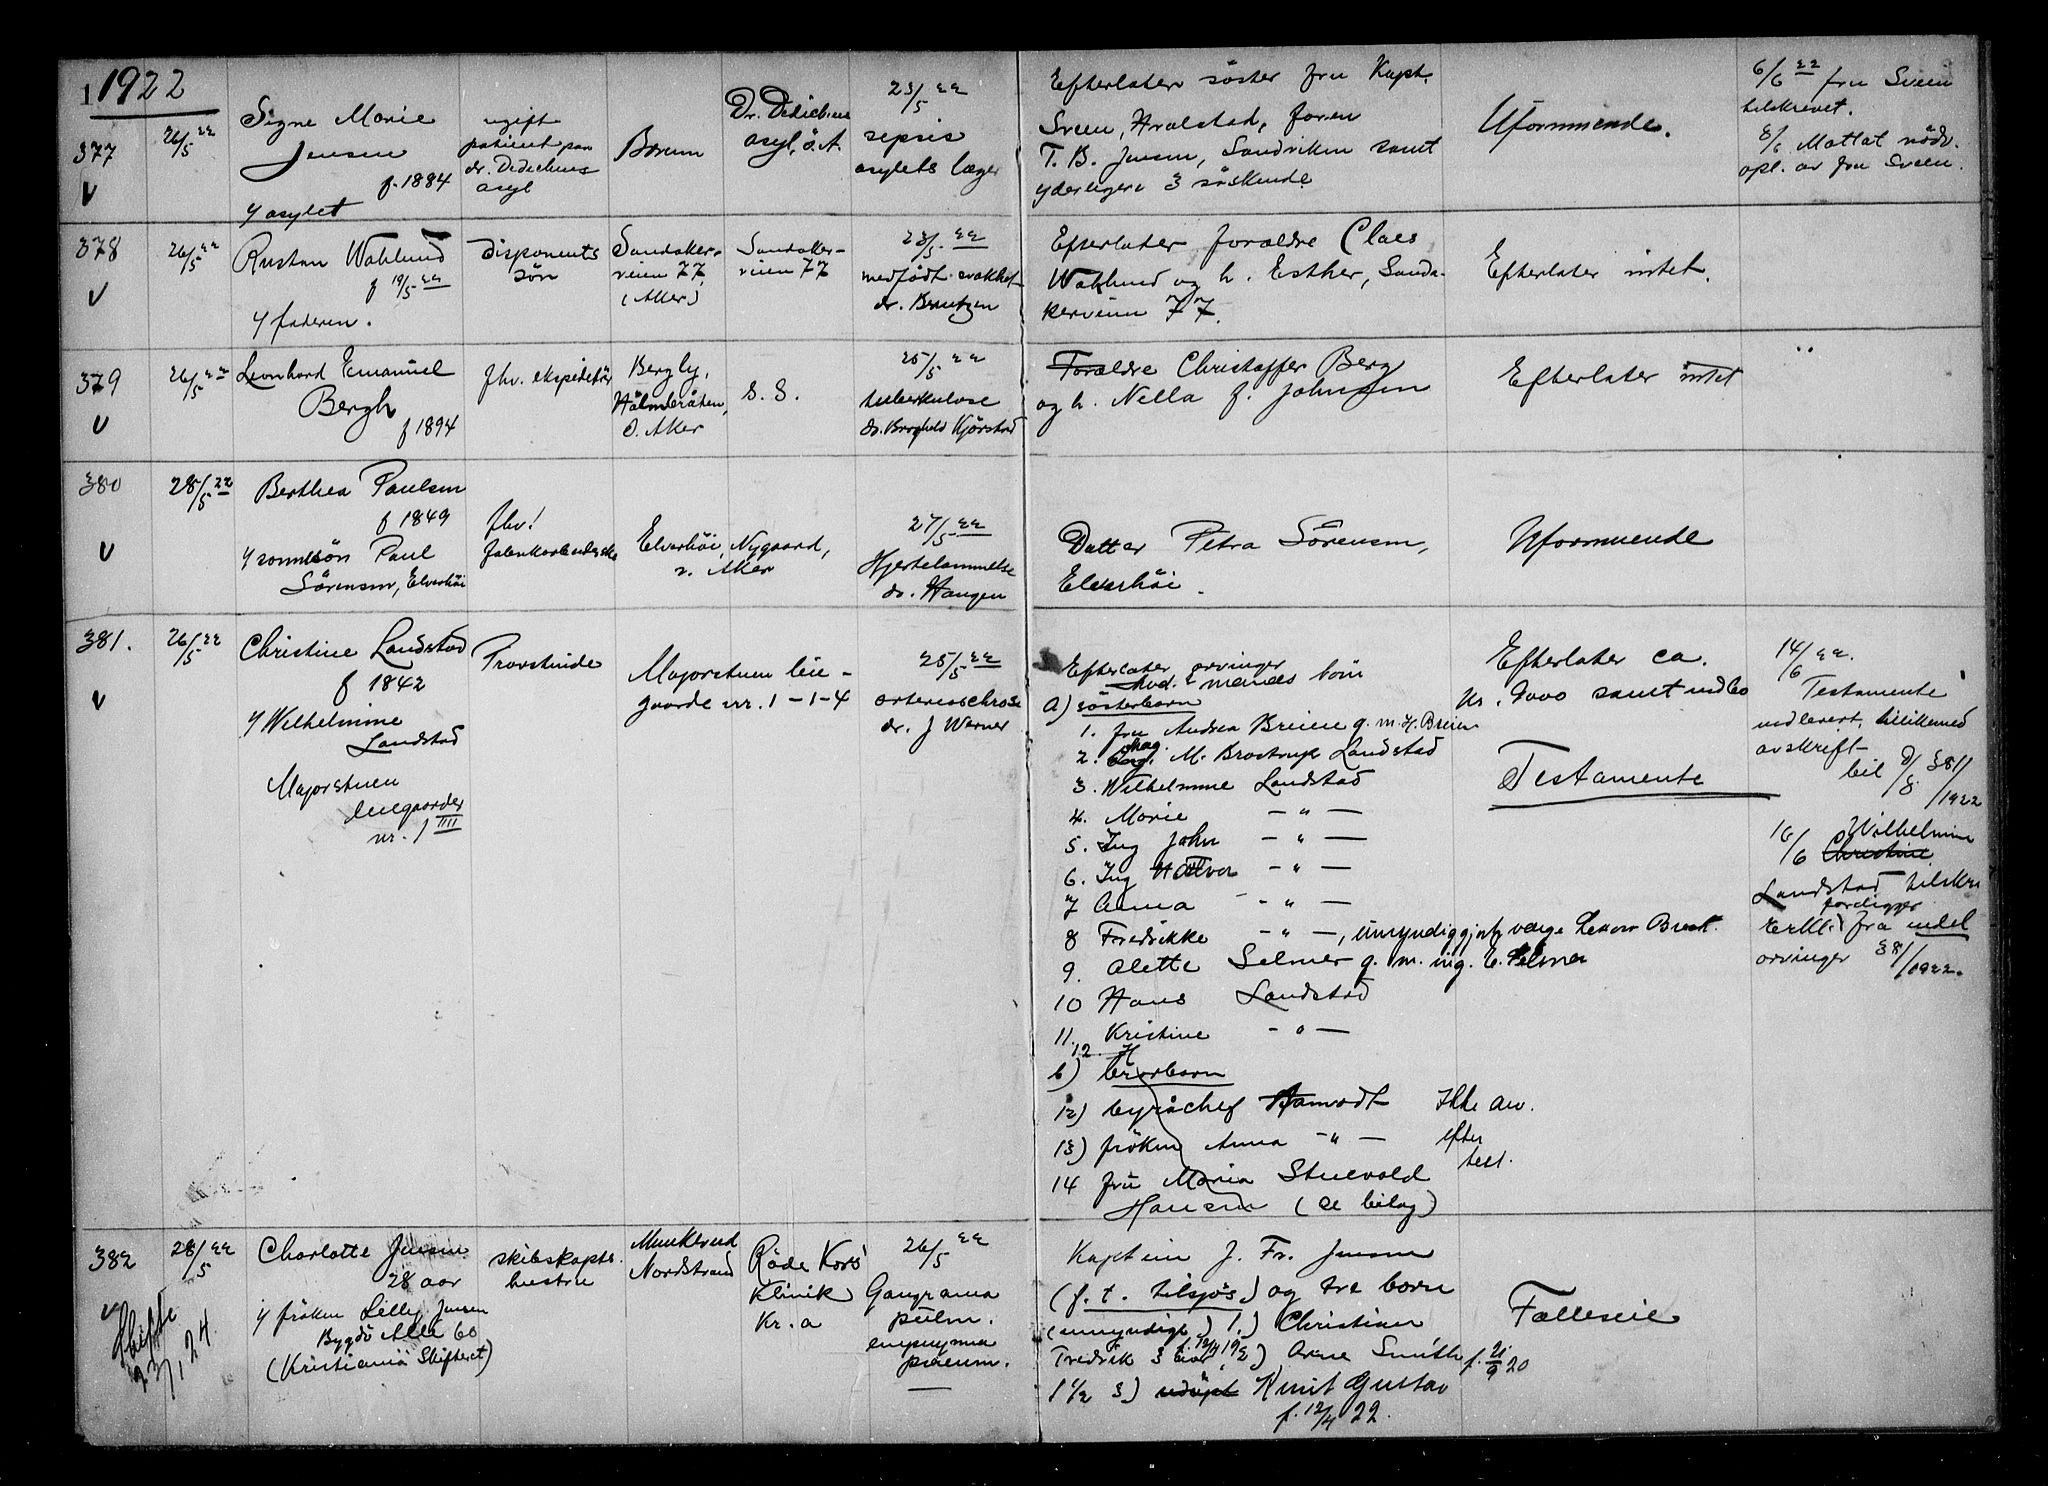 1922
377
26/5 22
Signe Marie
Jensen
f. 1884
v/ asylet
ugift
patient paa
dr. Dedichens
asyl
Bærum
Dr. Dedichens
asyl, ö. A.
23/5 22
sepsis
asylets læge
Efterlater söster fru Kapt.
Sveen, Hvalstad, foren
T. B. Jensen, Sandviken samt
yderligere 3 söskende
Uformuende.
6/6 22 fru Sveen
tilskrevet.
8/6 Mottat nödv.
opl. av fru Sveen.
378
26/5 22
Rustan Wahlund
f 19/5 22
v/ faderen.
Disponents
sön
Sandaker-
veien 77,
(Aker)
Sandaker-
veien 77
23/5 22
medfödt svakhet
dr. Berntzen
Efterlater foræld​re Claes
Wahlund og h. Esther, Sanda-
kerveien 77.
Efterlater intet.
379
26/5 22
Leonhard Emanuel
Bergh
f 1894
fhv. ekspeditör
Bergly,
Holmenråten,
Ö. Aker
S. S.
25/5 22
tuberkulose
dr. Borghild Kjörstad
Forældre Christoffer Berg
og h. Nella f. Johnsen
Efterlater intet
380
28/5 22
Berthea Paulsen
f 1849
v/ sönnesön Paul
Sörensen, Elverhöi
fhv.
Elverhöi, Nygaard,
v. Aker
27/5 22
Hjertelammelse
dr. Haugen
Datter Petra Sörensen,
Elverhöi.
Uformuende
381.
26/5 22
Christine Landstad
f 1842
v/ Wilhelmine
Landstad
Majorstuen
leiegaarder
nr. 1 IIII
Provstinde
Majorstuen leie-
gaarde nr. 1-1-4
25/5 22
arteriosclerose
dr. J Werner
Efterlater arvinger
Avd. mands börn
a) Sösterbarn
1. fru Andrea Breien g. m. H. Breien
2. M. Brostrup Landstad
3. Wilhelmine Landstad
4. Marie — " —
5. Ing John — " —
6. Ing Halvor — " —
7 Anna — " —
8 Fredrikke — " —, umyndiggjort, værge
9. Alette Selmer g. m. ing. E. Selmer
10 Hans Landstad
11. Kristine — " —
12.
b) brorbarn
12) byråchef Hamrodt Ikke arv.
13) fröken Anna — " — efter
test.
14 fru Maria Stuevold
Hansen (se bilag)
Efterlater ca.
kr. 9000 samt indbo
Testamente
14/6 22.
Testamente
indlevert, tillikemed
avskrift
bil 381/1922
16/6 Wilhelmine
Christine
Landstad tilskr.
foreligger
erkl. fra endel
arvinger 381/1922.
382
28/5 22
Charlotte Jensen
28 aar
v/ fröken Lilly Jensen
Bygdö Alle 60
(Kristiania Skifteret)
skibskapts.
hustru
Munkerud
Nordstrand
Röde Kors
Klinik
Kr. a
26/5 22
Gangræna
pulm.
empyema
pleum.
Kaptein J. Fr. Jensen
(f. t. tilsjös) og tre börn
(umyndige) 1.) Christian
Fredrik 3 aar f. 12/4 19 2) Arne Smith f. 21/9 20
1 1/2 3) udöpt Knut Gustav
f. 12/4 22.
Fælleseie